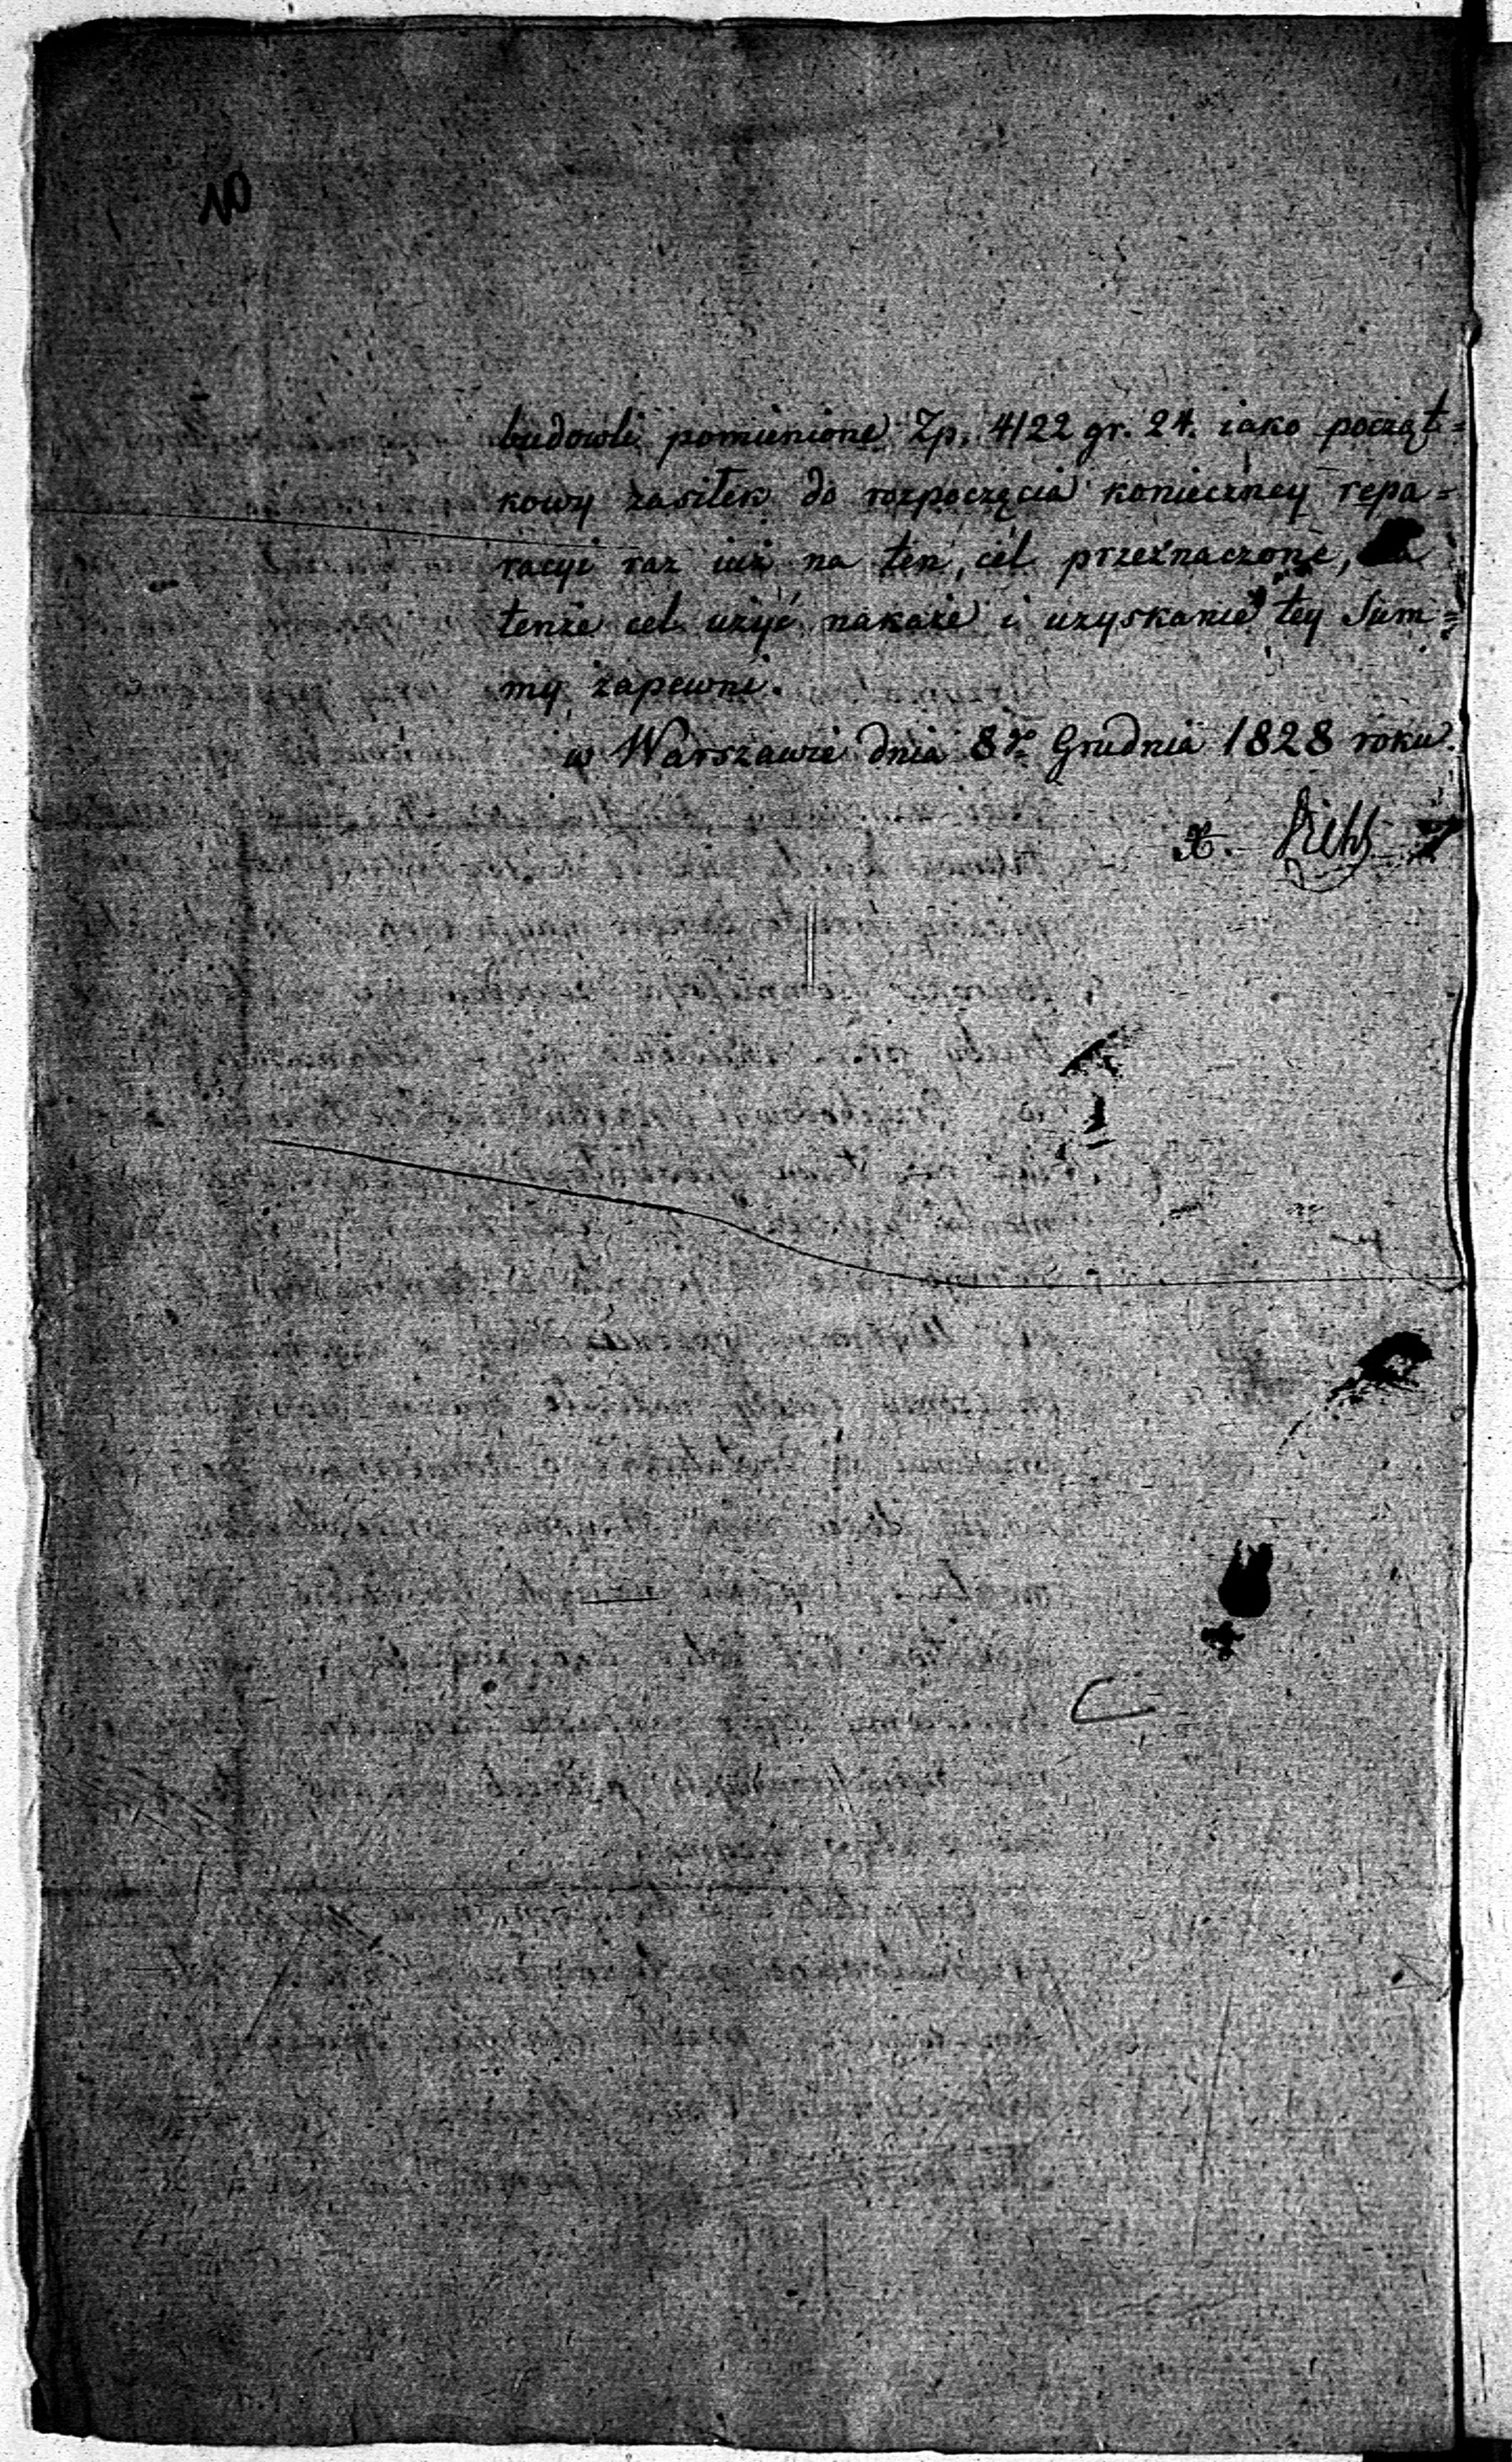 10
budowli pomienione Zp. 4122 gr. 24. iako począt=
kowy zasiłek do rozpoczęcia konieczney repa=
racyi raz iuż na ten cel przeznaczone, na
tenże cel użyć nakaże i uzyskanie tey Sum=
my zapewni.
w Warszawie dnia 8go Grudnia 1828 roku.
X.